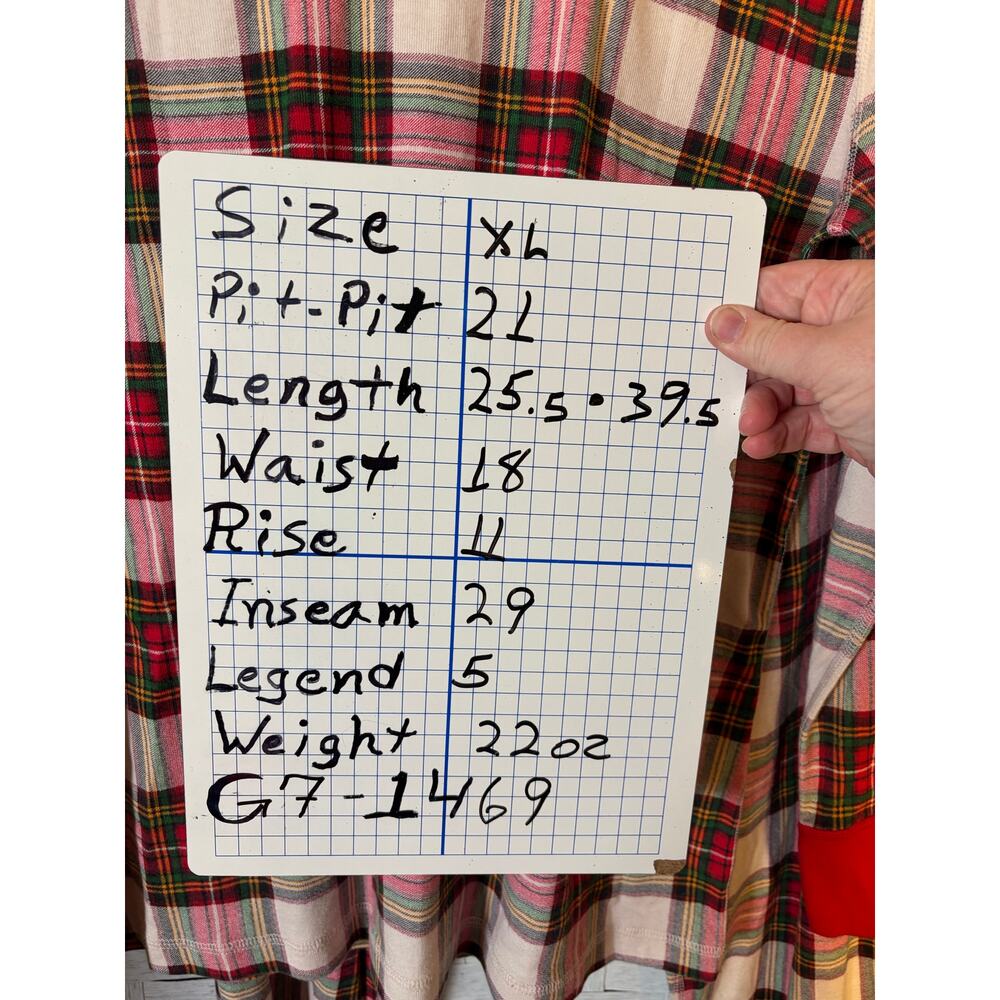 Size XL
Pit-Pit 21
Length 25.5 • 39.5
Waist 18
Rise 11
Inseam 29
Legend 5
Weight 22oz
G7-1469